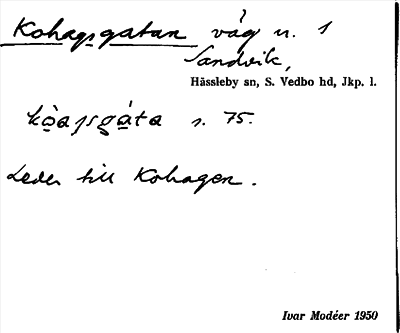 Kohagsgatan väg n. 1
Sandvik,
Hässleby sn, S. Vedbo hd, Jkp. l.
s. 75.
Leder till Kohagen.
Ivar Modéer 1950